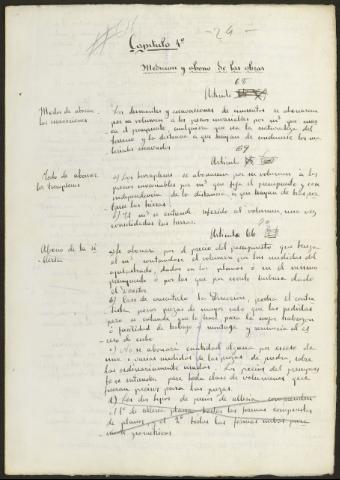 - 24 -
Capítulo 4º
Medicion y abono de las obras
68
Artículo
Modo de abonar las excavaciones
Los desmontes y excavaciones de cimientos se abonaran
por su volumen a los precios invariables por m³ que
en el presupuesto, cualquiera que sea la naturaleza del
terreno y la distancia a que hayan de conducirse los ma-
teriales excavados
69
Artículo
Modo de abonar
los terraplenes
a) Los terraplenes se abonaran por su volumen a los
precios invariables por m³ que fija el presupuesto y con
independencia de la distancia a que hayan de
las tierras.
b) El m³ se entiende referido al volumen una vez
consolidadas las tierras.
Artículo 66
Abono de la si-
llería
a) Se abonará por el precio del presupuesto que tenga
el m³ contandose el volumen con las medidas del
dados en los planos o en el mismo
presupuesto o por las que por escrito hubiera dado
el Director
b) Caso de consentirlo la Direccion, podrá el contra-
tista poner piezas de mayor cubo que las pedidas
pero se entiende que lo hará para su mejor
o facilidad de trabajo y montaje y renuncia al ex-
ceso de cubo
c) No se abonará cantidad alguna por exceso de
una o varias medidas de las piezas de piedra, sobre
las ordinariamente usadas. Los precios del presupues-
to se entienden para toda clase de volumenes que
sean precisos para las piezas.
d) Los dos tipos de precio de sillería comprenden
el 1º de sillería plana todas las formas compuestas
de planos, y el 2º todas las formas
geometricas